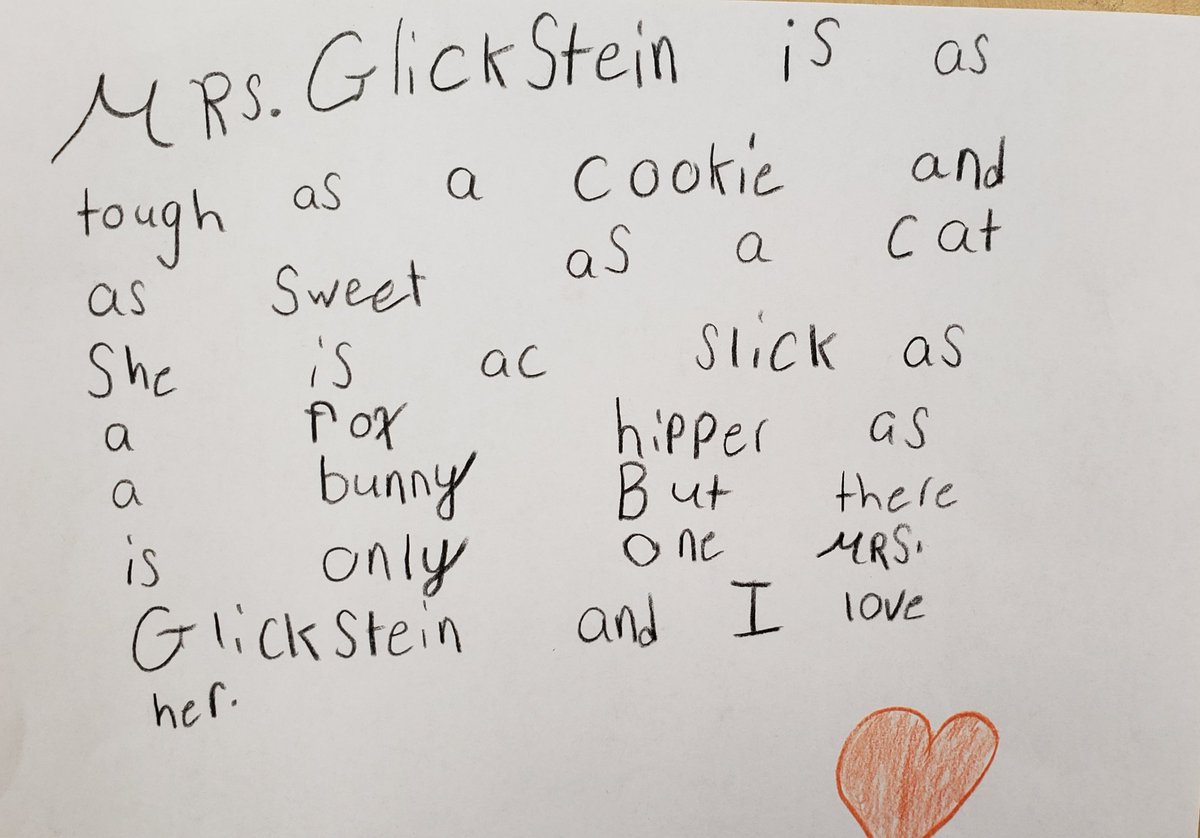 MRS. GlickStein is as
tough as a cookie and
as Sweet as a cat
She is ac slick as
a fox hipper as
a bunny But there
is only one MRS.
GlickStein and I love
her.